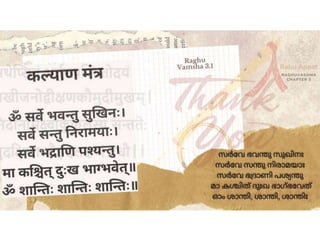 Raghu
Vamsha 3.1
Babu Appat
RAGHUVAMSHA
CHAPTER 3
कल्याण मंत्र
ॐ सर्वे भवन्तु सुखिनः।
सर्वे सन्तु निरामयाः।
सर्वे भद्राणि पश्यन्तु।
मा कश्चित् दुःख भाग्भवेत्॥
ॐ शान्तिः शान्तिः शान्तिः॥
Thank
You
സർവേ ഭവന്തു സുഖിനഃ
സർവേ സന്തു നിരാമയാഃ
സർവേ ഭദ്രാണി പശ്യന്തു
മാ കശ്ചിത് ദുഃഖ ഭാഗ്ഭവേത്
ഓം ശാന്തി, ശാന്തി, ശാന്തിഃ